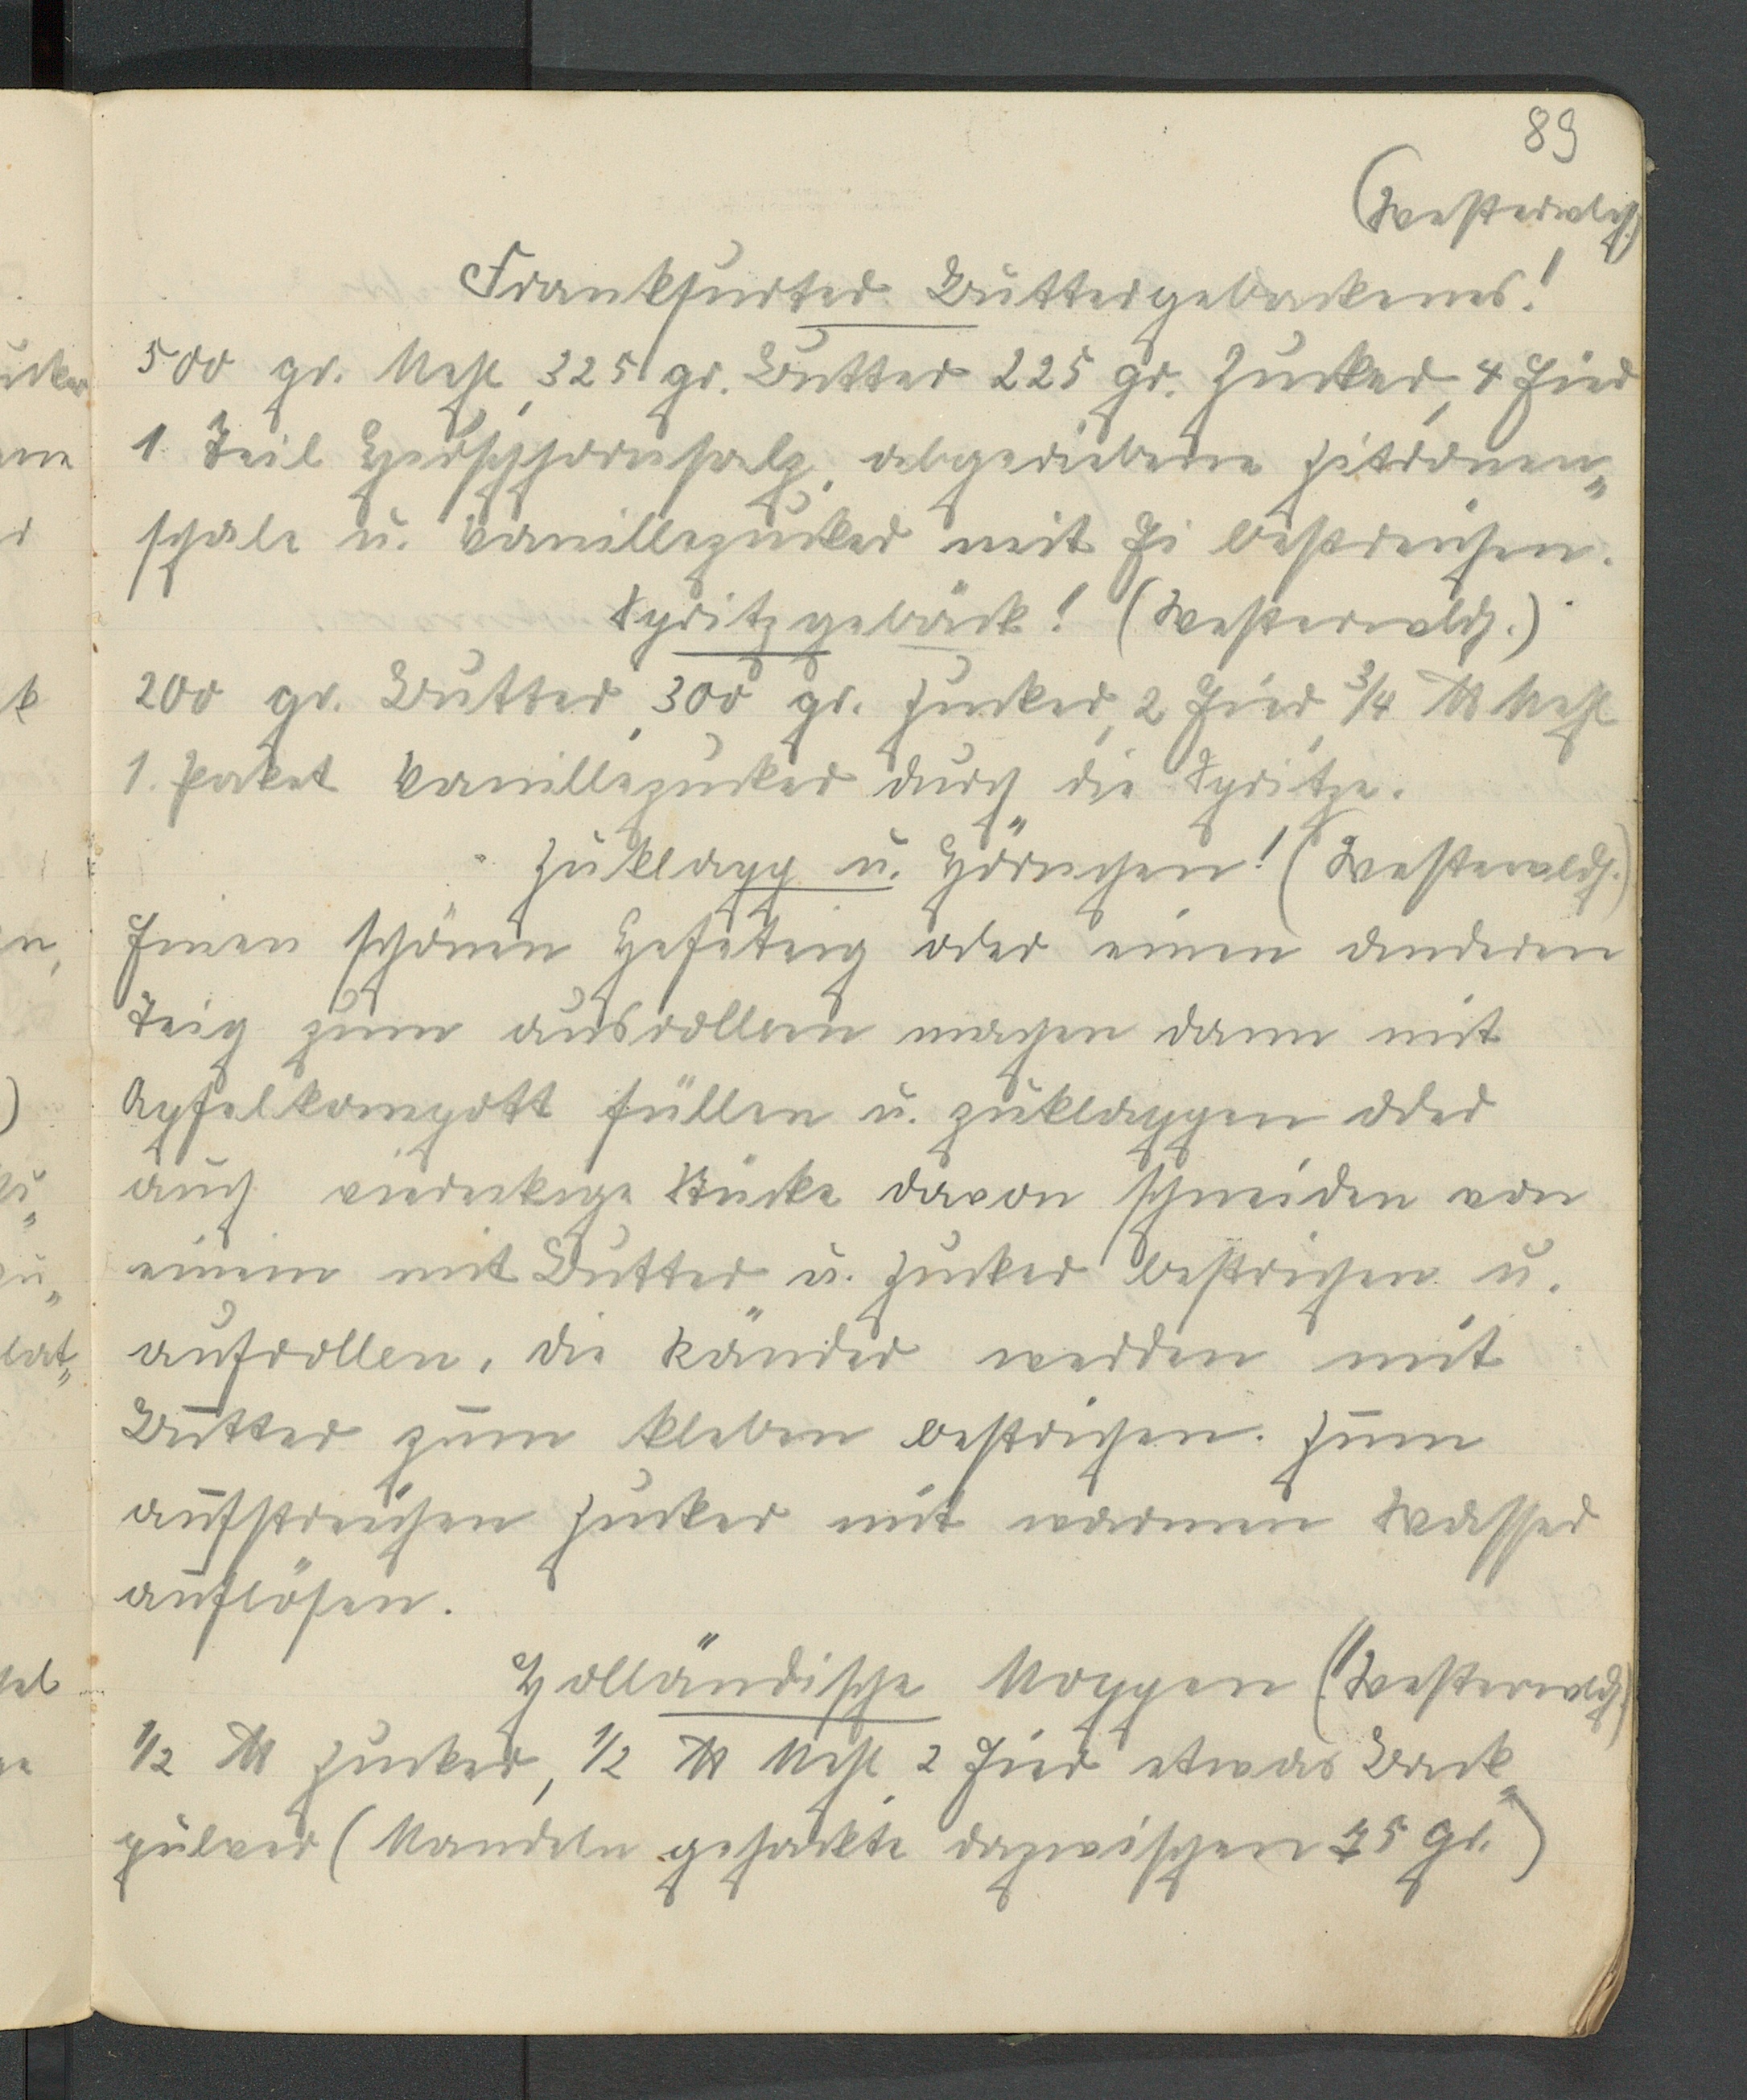 89
(Westerwldh.)
Frankfurter Buttergebackenes!
500 gr. Mehl, 325 gr. Butter 225 gr. Zucker, 4 Eier
1 Teil Hirschhornsalz, abgeriebene Zitronen„
schale u. Vanillezucker mit Ei bestreichen.
Spritzgebäck! (Westerwldh.)
200 gr. Butter, 300 gr. Zucker, 2 Eier, 3/4 ℔ Mehl
1. Paket Vanillezucker durch die Spritze.
Zuklapp u. Hörnchen! (Westerwldh.)
Einen schönen Hefeteig oder einen anderen
Teig zum ausrollen machen dann mit
Apfelkompott füllen u. zuklappen oder
auch viereckige Stücke davon schneiden von
einem mit Butter u. Zucker bestrichen u.
aufrollen, die Ränder werden mit
Butter zum kleben bestrichen. Zum
aufstreichen Zucker mit warmen Wasser
auflösen.
Holländische Moppen (Westerwldh.)
1/2 ℔ Zucker, 1/2 ℔ Mehl, 2 Eier etwas Back„
pulver (Mandeln gehackte dazwischen 75 gr.)